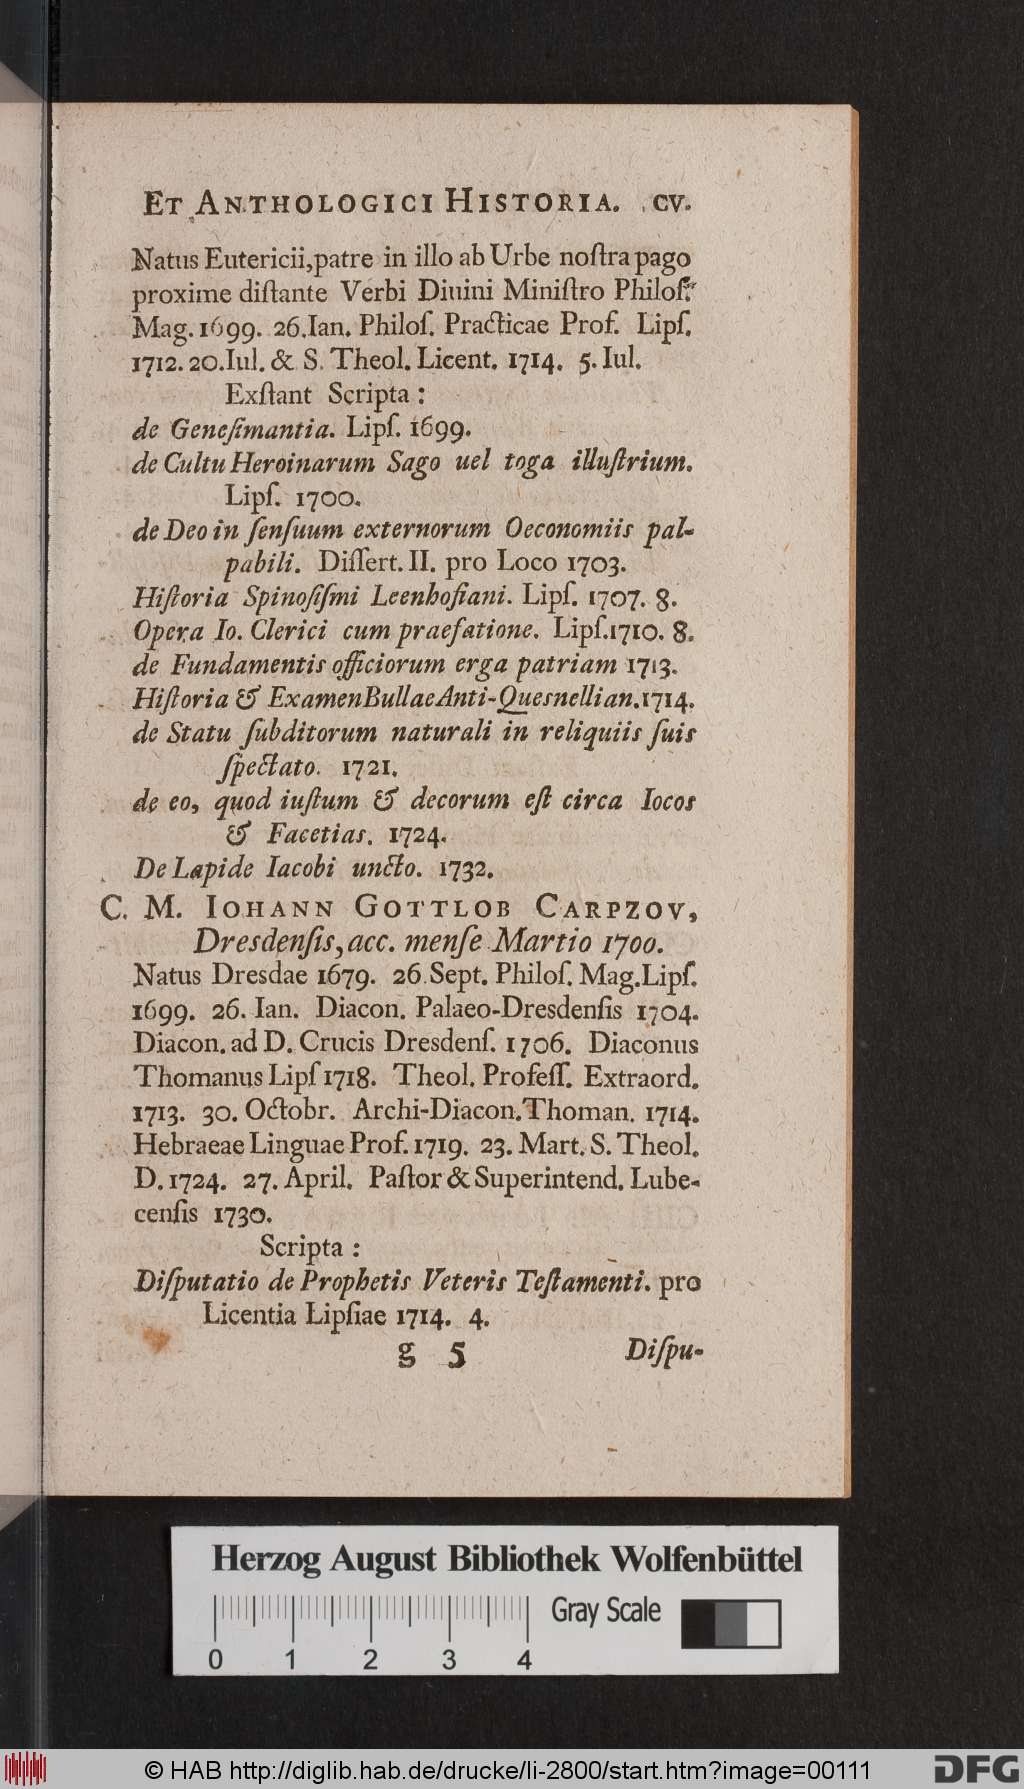 ET ANTHOLOGICI HISTORIA. CV.
Natus Eutericii, patre in illo ab Urbe noſtra pago
proxime diſtante Verbi Diuini Miniſtro Philoſ.
Mag. 1699. 26. Ian. Philoſ. Practicae Prof. Lipſ.
1712. 20. Iul. & S. Theol. Licent. 1714. 5. Iul.
Exſtant Scripta :
de Geneſimantia. Lipſ. 1699.
de Cultu Heroinarum Sago uel toga illuſtrium.
Lipſ. 1700.
de Deo in ſenſuum externorum Oeconomiis pal-
pabili. Diſſert. II. pro Loco 1703.
Hiſtoria Spinoſiſmi Leenhofiani. Lipſ. 1707. 8.
Opera Io. Clerici cum praefatione. Lipſ. 1710. 8.
de Fundamentis officiorum erga patriam 1713.
Hiſtoria & Examen Bullae Anti-Quesnellian. 1714.
de Statu ſubditorum naturali in reliquiis ſuis
ſpectato. 1721.
de eo, quod iuſtum & decorum eſt circa Iocos
& Facetias. 1724.
De Lapide Iacobi uncto. 1732.
C. M. IOHANN GOTTLOB CARPZOV,
Dresdenſis, acc. menſe Martio 1700.
Natus Dresdae 1679. 26 Sept. Philoſ. Mag. Lipſ.
1699. 26. Ian. Diacon. Palaeo-Dresdenſis 1704.
Diacon. ad D. Crucis Dresdenſ. 1706. Diaconus
Thomanus Lipſ 1718. Theol. Profeſſ. Extraord.
1713. 30. Octobr. Archi-Diacon. Thoman. 1714.
Hebraeae Linguae Prof. 1719. 23. Mart. S. Theol.
D. 1724. 27. April. Paſtor & Superintend. Lube-
cenſis 1730.
Scripta :
Diſputatio de Prophetis Veteris Teſtamenti. pro
Licentia Lipſiae 1714. 4.
g 5 Diſpu-
Herzog August Bibliothek Wolfenbüttel
Gray Scale
0 1 2 3 4
© HAB http://diglib.hab.de/drucke/li-2800/start.htm?image=00111
DFG